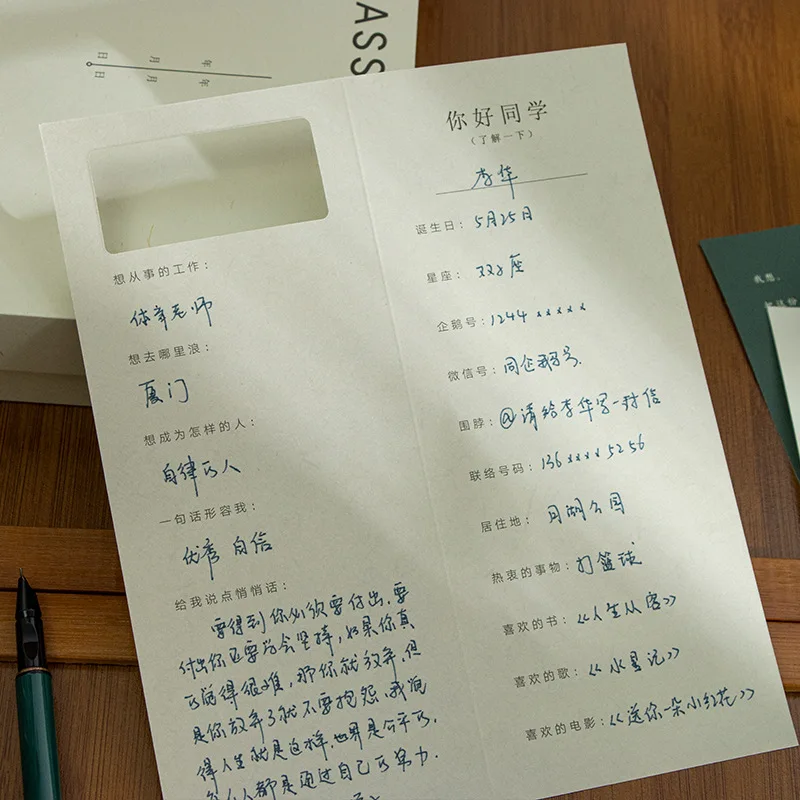 ASS
年 月 日
年 月 日
想从事的工作：
体育老师
想去哪里浪：
厦门
想成为怎样的人：
自律的人
一句话形容我：
优秀 自信
给我说点悄悄话：
要得到你必须要付出，要
付出你还要学会坚持，如果你真
的觉得很难，那你就放弃，但
是你放弃了就不要抱怨。我觉
得人生就是这样，世界是公平的，
每个人都是通过自己的努力.
你好同学
（了解一下）
李华
诞生日：5月25日
星座：双子座
企鹅号：1244 xxxxx
微信号：同企鹅号.
围脖：@请给李华写一封信
联络号码：136 xxxx 5256
居住地：月湖公园
热衷的事物：打篮球
喜欢的书：《人生从容》
喜欢的歌：《水星记》
喜欢的电影：《送你一朵小红花》
我想，